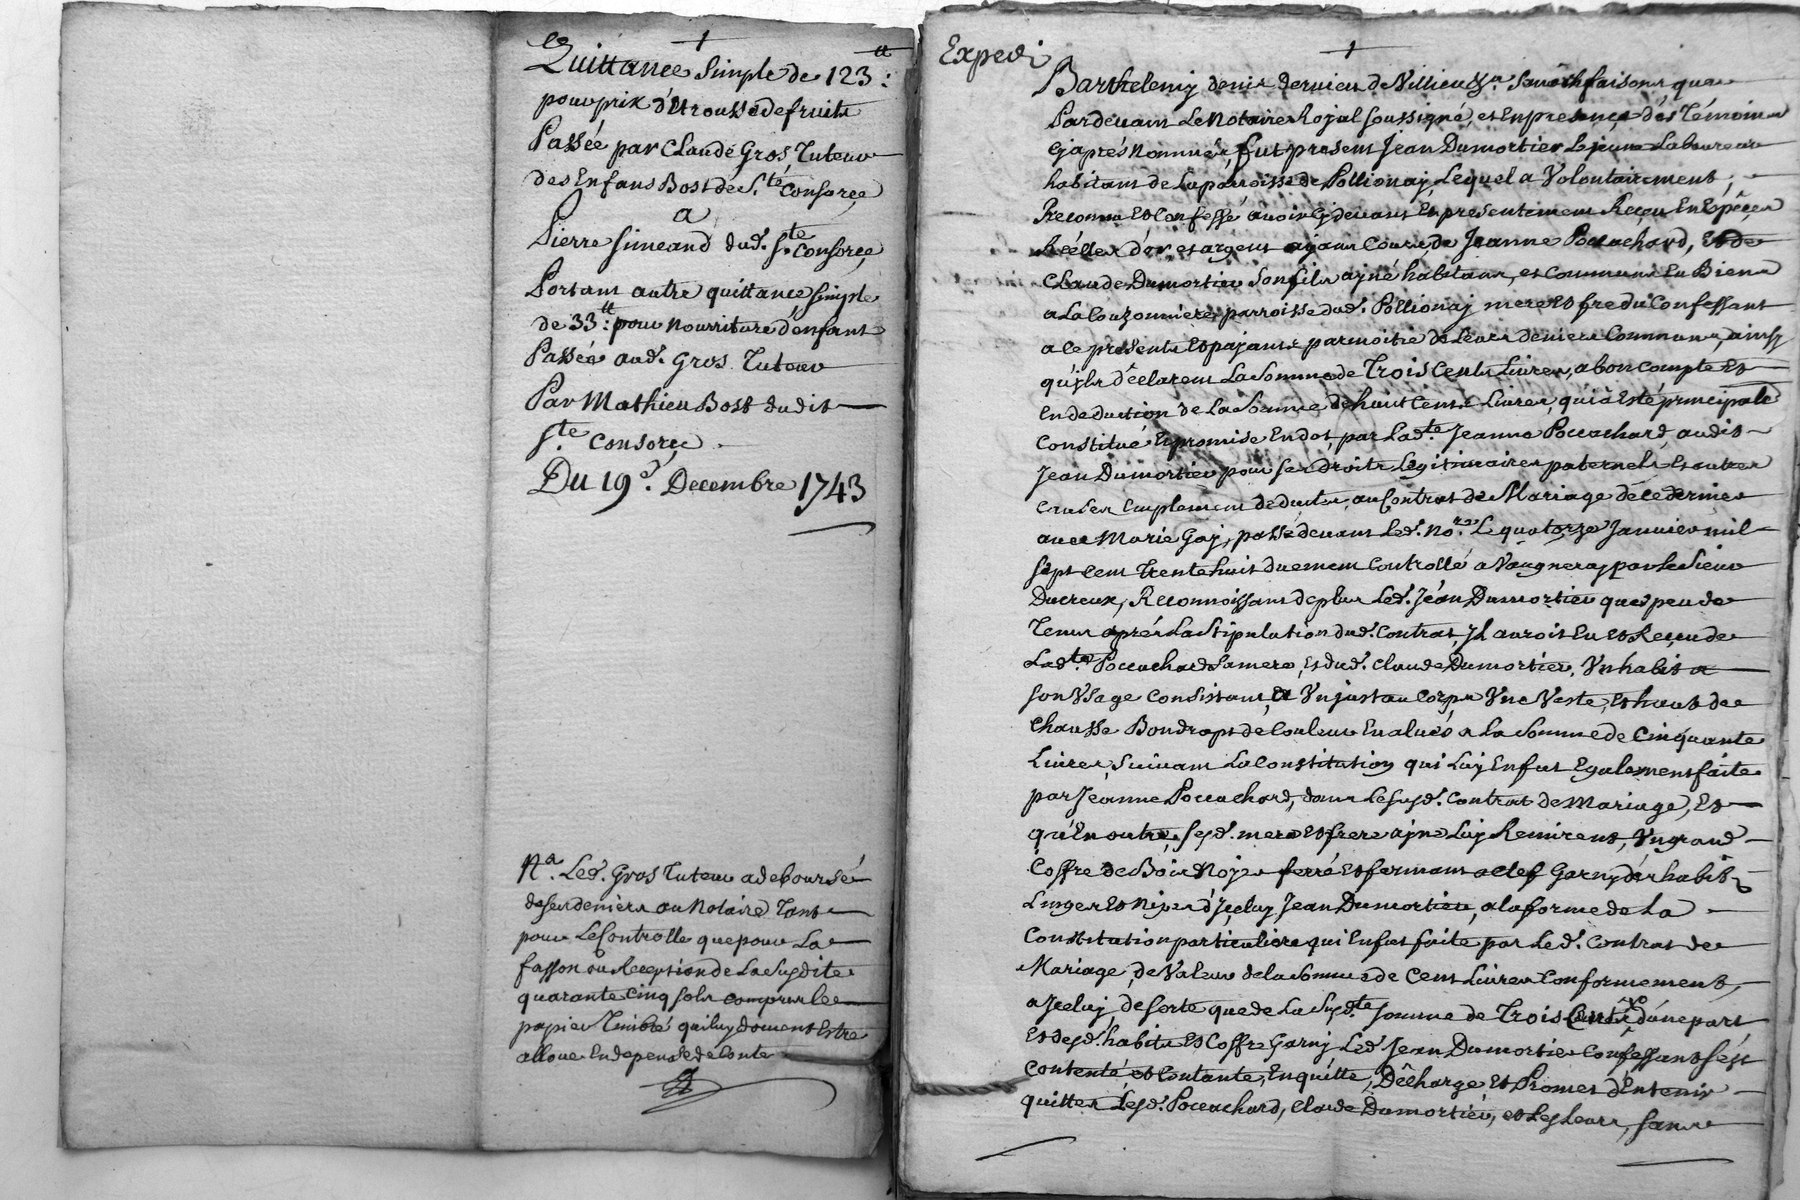 Quittance simple de 123 tt:
pour prix d'Etrousse de fruits
Passée par Claude Gros, Tuteur
des Enfans Bost de Ste Consorce
a
Pierre Simeand dud. Ste Consorce
Portant autre quittance simple
de 33 tt: pour nourriture d'enfant
Passée aud. Gros Tuteur
Par Mathieu Bost dudit
Ste Consorce
Du 19e. Decembre 1743
Na. Led. Gros Tuteur a deboursé
de ses deniers au Notaire Tant
pour Le Controlle que pour La
fasson ou Reception de La susdite
quarante cinq sols compris le
papier Timbré qui luy doivent Estre
alloue En depense de Conte
Expedi
Barthelemy denis dervieu de Villieu Sr. Sçavoir faisons que
Pardevant Le Notaire Royal soussigné, et En presence des Témoins
Cy aprés Nommés, fut present Jean Dumortier Le jeune Laboureur
habitant de La parroisse de Pollionay, Lequel a Volontairement,
Reconnu Et Confessé avoir Cy devant Et presentement Receu En Espéces
Réelles d'or et argent ayant Cours de Jeanne Poccachard, Et de
Claude Dumortier son fils ayné habitans, et Communs En Biens
a La Couzonniere, parroisse dud. Pollionay mere et frere du Confessant
a Ce presents Et payants par moitié de Leurs deniers Communs, ainsy
qu'jls déclarent La Somme de Trois Cents Livres, a bon Compte Et
En deduction de La Somme de huit Cents Livres, qui a Esté principale
Constitué Et promise En dot par Ladte. Jeanne Poccachard audit
Jean Dumortier pour ses droits Légitimaires paternels Et autres
Causes Emplement deduites, au Contrat de Mariage de ce dernier
avec Marie Gay, passé devant Led. Nore. Le quatorze Janvier mil
sept cent Trente huit duement Controllé a Vaugneray par Le Sieur
Ducreux, Reconnoissant de plus Led. Jean Dumortier que peu de
Tems aprés La Stipulation dud. Contrat, Jl auroit Eu Et Reçeu de
Ladte. Poccachard sa mere, Et dud. Claude Dumortier, Un habit a
son Usage Consistant, En Un justaucorps Une Veste, Et haut de
Chausse Bon draps de Couleur Evalués a La Somme de Cinquante
Livres, Suivant La Constitution qui Luy En fut Egalement faite
par Jeanne Poccachard, dans Le susd. Contrat de Mariage, Et
qu'En outre, sesd. mere et frere ayné Luy Remirent, Un grand
Coffre de Bois Noyer ferré Et fermant a Clef Garny des habits
Linges Et Nipes d'jceluy Jean Dumortier, a la forme de La
Constitution particuliere qui En fut faite par Led. Contrat de
Mariage, de Valeur de la Somme de Cent Livres Conformement,
a Jceluy, de sorte que de La susdte. Somme de Trois Cents d'une part
Et desd. habits Et Coffre Garny Led. Jean Dumortier Confessant s'est
Contenté et Contante, En quitte, Décharge Et Promet d'En tenir
quittes Lesd. Poccachard, Claude Dumortier, et Les Leurs, sans